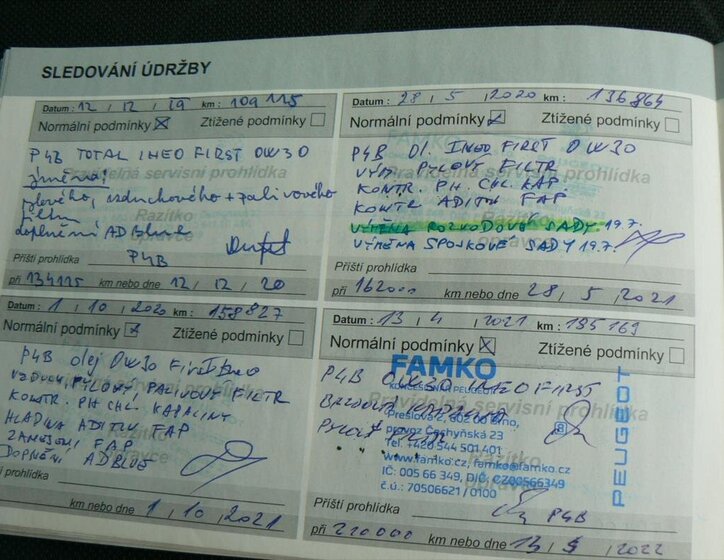 SLEDOVÁNÍ ÚDRŽBY
Datum : 12 / 12 / 19 km : 109 115
Normální podmínky ☒ Ztížené podmínky ☐
P4B TOTAL INEO FIRST OW30
pylového, vzduchového + palivového
filtru
doplnění AD Blue
Pravidelná servisní prohlídka
Razítko
opravce
P4B
Příští prohlídka
při 134115 km nebo dne 12 / 12 / 20
Datum : 28 / 5 / 2020 km : 136864
Normální podmínky ☑ Ztížené podmínky ☐
FAMKO
P4B Ol. INEO FIRST OW30
VÝM. PYLOVÝ FILTR
Pravidelná servisní prohlídka
KONTR. PH. CHL. KAP.
KONTR ADITIV FAP
Razítko
opravce
VÝMĚNA ROZVODOVÉ SADY 19.7.
VÝMĚNA SPOJKOVÉ SADY 19.7.
Příští prohlídka
při 162000 km nebo dne 28 / 5 / 2021
Datum : 1 / 10 / 2020 km : 158827
Normální podmínky ☒ Ztížené podmínky ☐
P4B olej OW30 First Ineo
VZDUCH, PYLOVÝ PALIVOVÝ FILTR
KONTR. PH CHL. KAPALINY
HLADINA ADITIV FAP
ZANEŠENÍ FAP
DOPLNĚNÍ ADBLUE
servisní prohlídka
Razítko
opravce
prohlídka
km nebo dne 1 / 10 / 2021
Datum : 13 / 4 / 2021 km : 195169
Normální podmínky ☒ Ztížené podmínky ☐
FAMKO
KONCESIONÁŘ PEUGEOT
P4B OW30 INEO FIRST
Pravidelná servisní prohlídka
Přeslova 2, 602 00 Brno,
provoz Čechyňská 23
Tel. +420 544 501 401
www.famko.cz, famko@famko.cz
IČ: 005 66 349, DIČ: CZ00566349
č.ú.: 70506621 / 0100
8
PEUGEOT
Razítko
opravce
Příští prohlídka
P4B
při 220000 km nebo dne 13 / / 2022